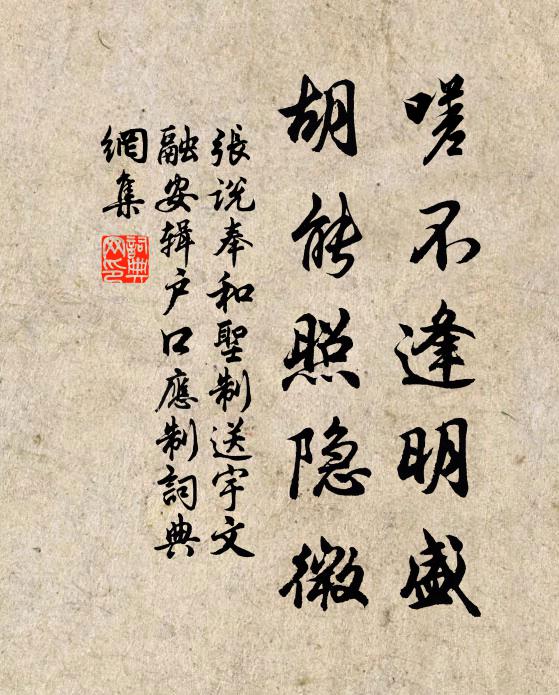 嗟不逢明盛
胡能照隐微
張说奉和聖制送宇文
融安辑户口應制詞典
網集
詞典
网印